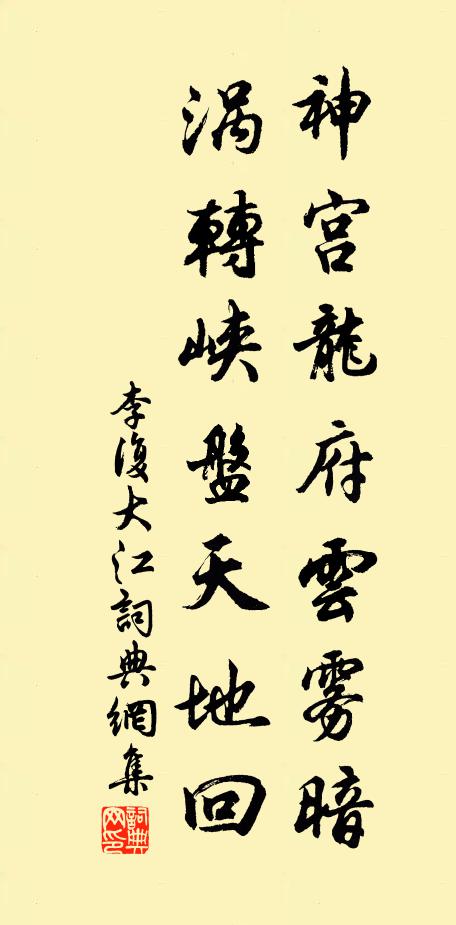 神宫龍府雲雾暗
渦轉峡盤天地回
李復大江詞典網集
詞典網印